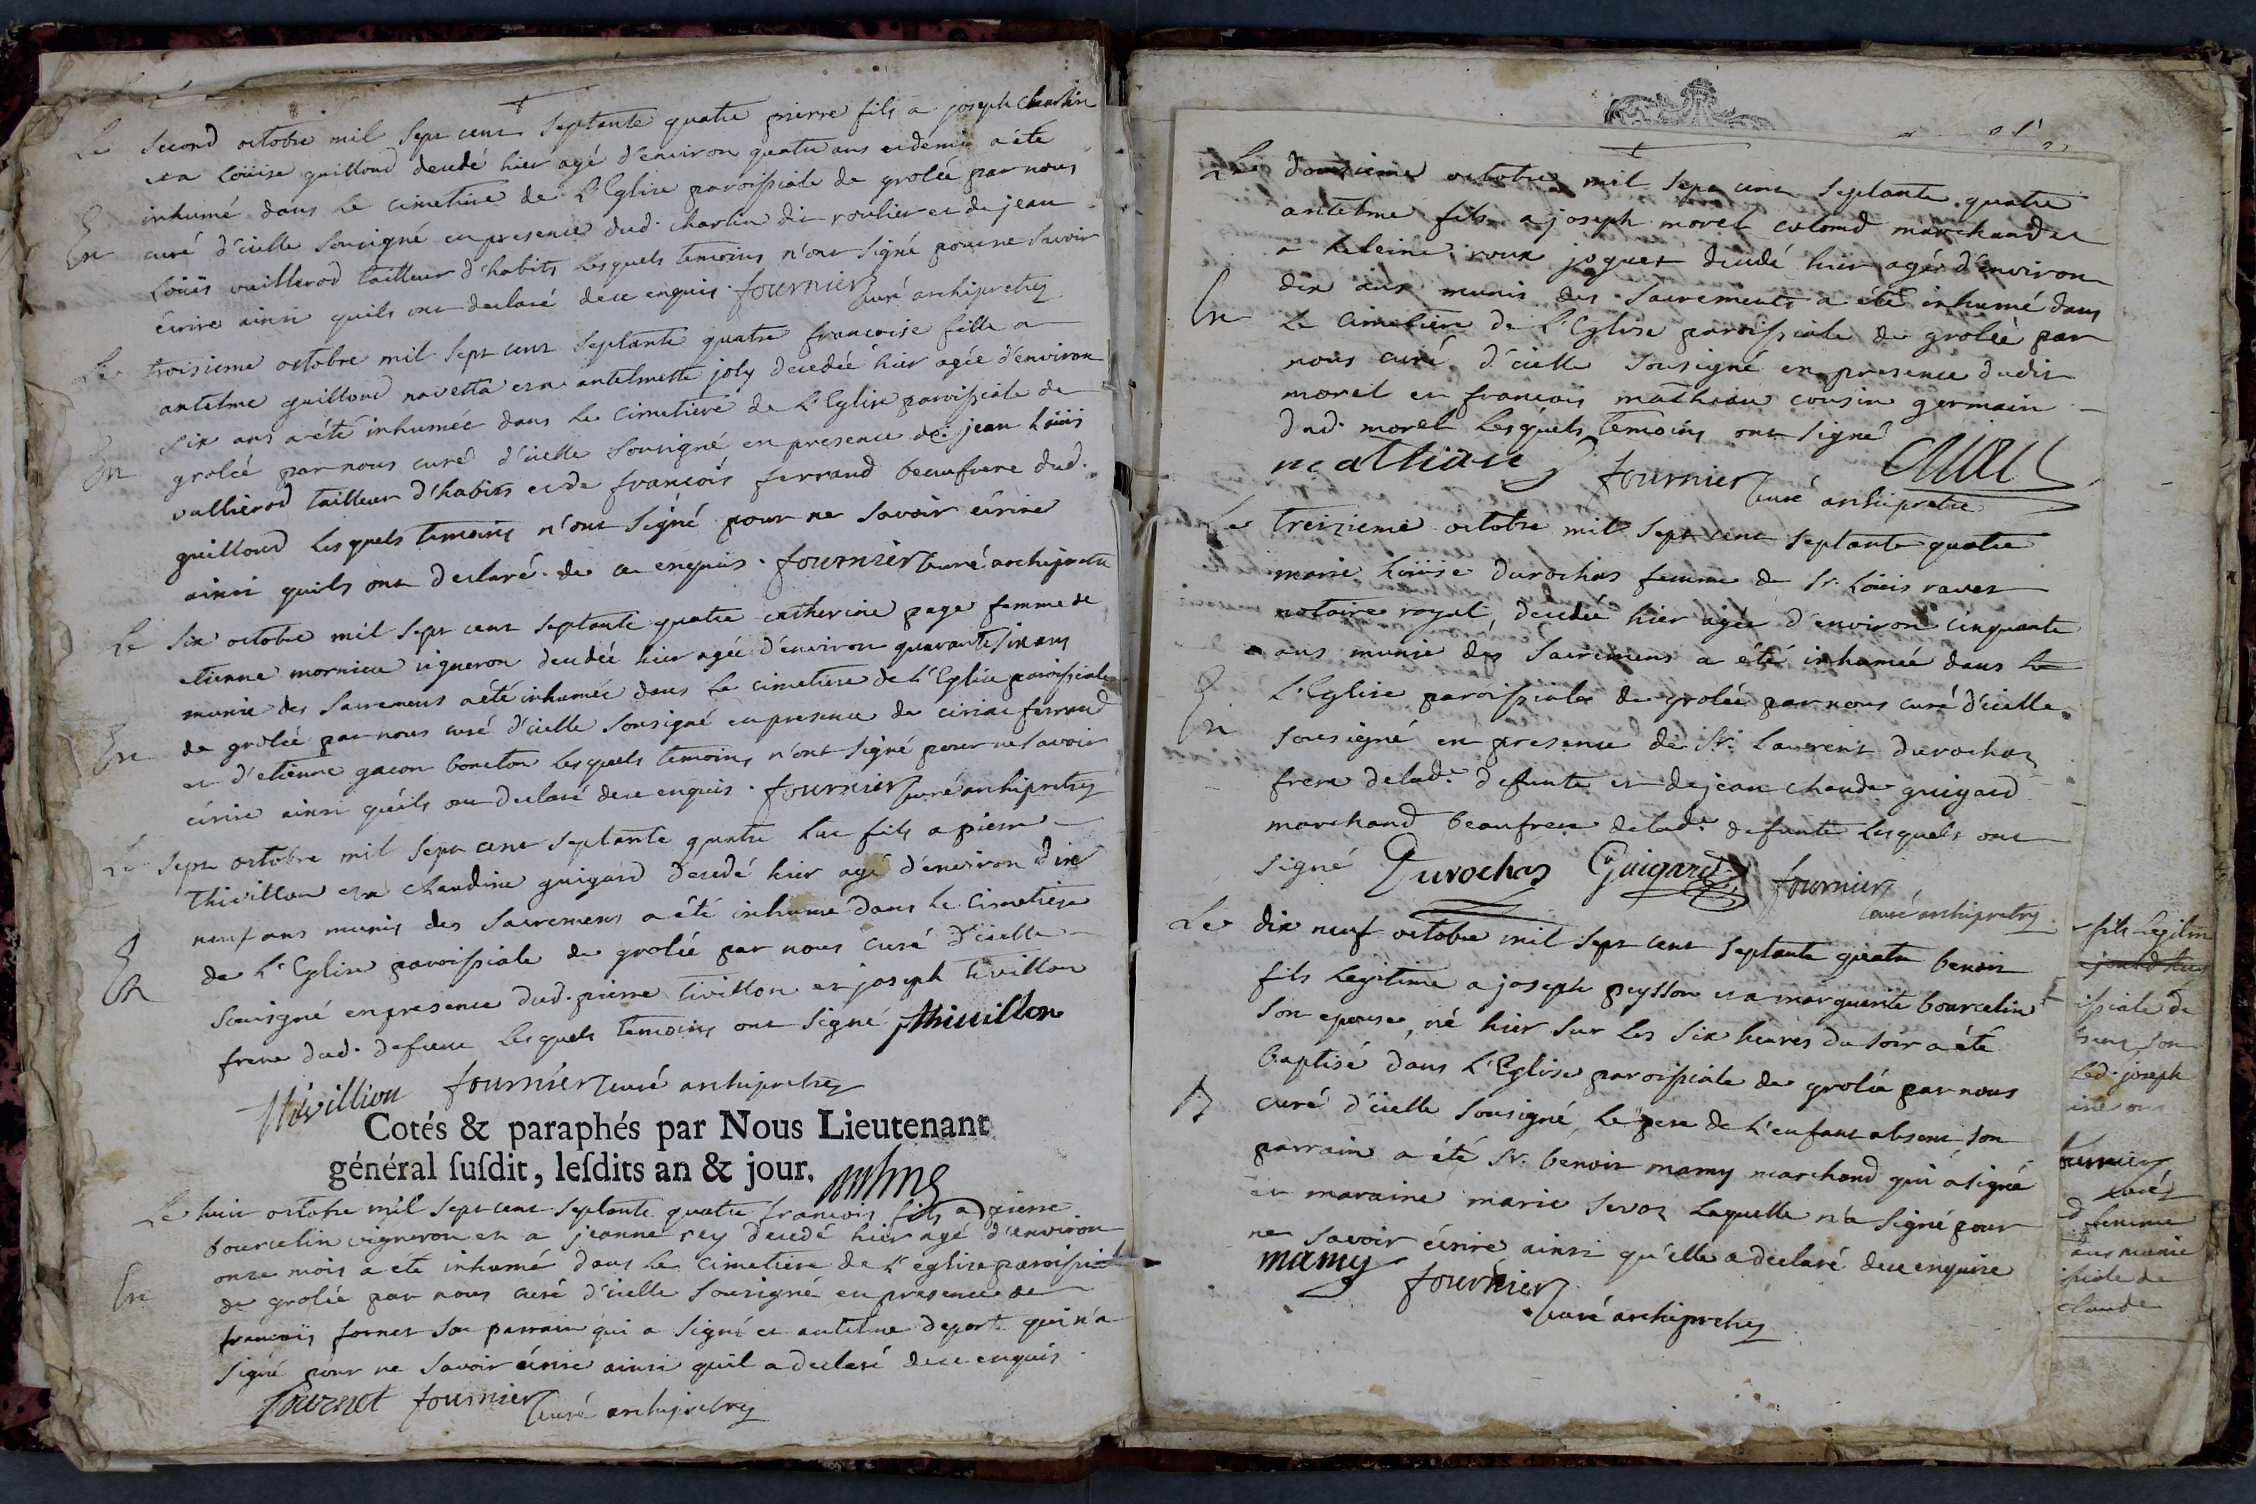 Le second octobre mil sept cent septante quatre pierre fils a joseph charlin
et a Loüise guilloud decedé hier agé d'environ quatre ans et demi a été
inhumé dans le cimetiere de L'Eglise paroissiale de grolée par nous
En curé d'icelle sousigné en presence dud. charlin dit roulier et de jean
Loüis vaillerod tailleur d'habits lesquels temoins n'ont signé pour ne savoir
écrire ainsi quils ont declaré de ce enquis. fournier curé archipretre
Le troisieme octobre mil sept cent septante quatre francoise fille a
antelme guilloud navetta et a antelmette joly decedée hier agée d'environ
six ans a été inhumée dans le cimetiere de L'Eglise paroissiale de
En grolée par nous curé d'icelle sousigné en presence de jean Loüis
vallierod tailleur d'habits et de françois ferrand beaufrere dud.
guilloud lesquels temoins n'ont signé pour ne savoir écrire
ainsi quils ont declaré de ce enquis. fournier curé archipretre
Le six octobre mil sept cent septante quatre catherine page femme de
etienne mornieu vigneron decedée hier agée d'environ quarante six ans
munie des sacremens a été inhumée dans le cimetiere de L'Eglise paroissiale
En de grolée par nous curé d'icelle sousigné en presence de ciriac ferrand
et d'etienne gacon boncton lesquels temoins n'ont signé pour ne savoir
écrire ainsi qu'ils ont declaré de ce enquis. fournier curé archipretre
Le sept octobre mil sept cent septante quatre Luc fils a pierre
Thivillon et a Claudine guigard decedé hier agé d'environ dix
neuf ans munis des sacremens a été inhumé dans le cimetiere
de L'Eglise paroissiale de grolée par nous curé d'icelle
En sousigné en presence dud. pierre tivillon et joseph tivillon
frere dud. defunt lesquels temoins ont signé Thivillon
Thivillion fournier curé archipretre
Cotés & paraphés par Nous Lieutenant
général susdit, lesdits an & jour.
Le huit octobre mil sept cent septante quatre francois fils a pierre
bourcelin vigneron et a jeanne rey decedé hier agé d'environ
onze mois a été inhumé dans le cimetiere de L'eglise paroissiale
En de grolée par nous curé d'icelle sousigné en presence de
francois fornet son parrain qui a signé et antelme deport qui n'a
signé pour ne savoir écrire ainsi quil a declaré de ce enquis
fournet fournier curé archipretre
Le douzieme octobre mil sept cent septante quatre
antelme fils a joseph morel colomd marchand et
a heleine roux joguet decedé hier agé d'environ
dix ans munis des sacrements a été inhumé dans
En le cimetiere de L'Eglise paroissiale de grolée par
nous curé d'icelle sousigné en presence dudit
morel et francois mathiau cousin germain
dud. morel lesquels temoins ont signé
mathiau fournier curé archipretre
Le treizieme octobre mil sept cent septante quatre
marie Loüise durochas femme de Sr. Loüis ravet
notaire royal, decedée hier agée d'environ cinquante
ans munie des sacremens a été inhumée dans le
L'Eglise paroissiale de grolée par nous curé d'icelle
En sousigné en presence de Sr. Laurent durochas
frere de lade. defunte et de jean claude guigard
marchand beaufrere de lade. defunte lesquels ont
signé Durochas Guigard fournier
curé archipretre
Le dix neuf octobre mil sept cent septante quatre benoit
fils legitime a joseph peysson et a marguerite bourcelin
son epouse, né hier sur les six heures du soir a été
baptisé dans L'Eglise paroissiale de grolée par nous
B curé d'icelle sousigné, le pere de l'enfant absent son
parrain a été Sr. benoit mamy marchand qui a signé
et maraine marie sevoz laquelle n'a signé pour
ne savoir écrire ainsi qu'elle a declaré de ce enquise
mamy fournier
curé archipretre
fils legitim
issiale de
son
led. joseph
fournier
curé
femme
ans munie
issiale de
claude